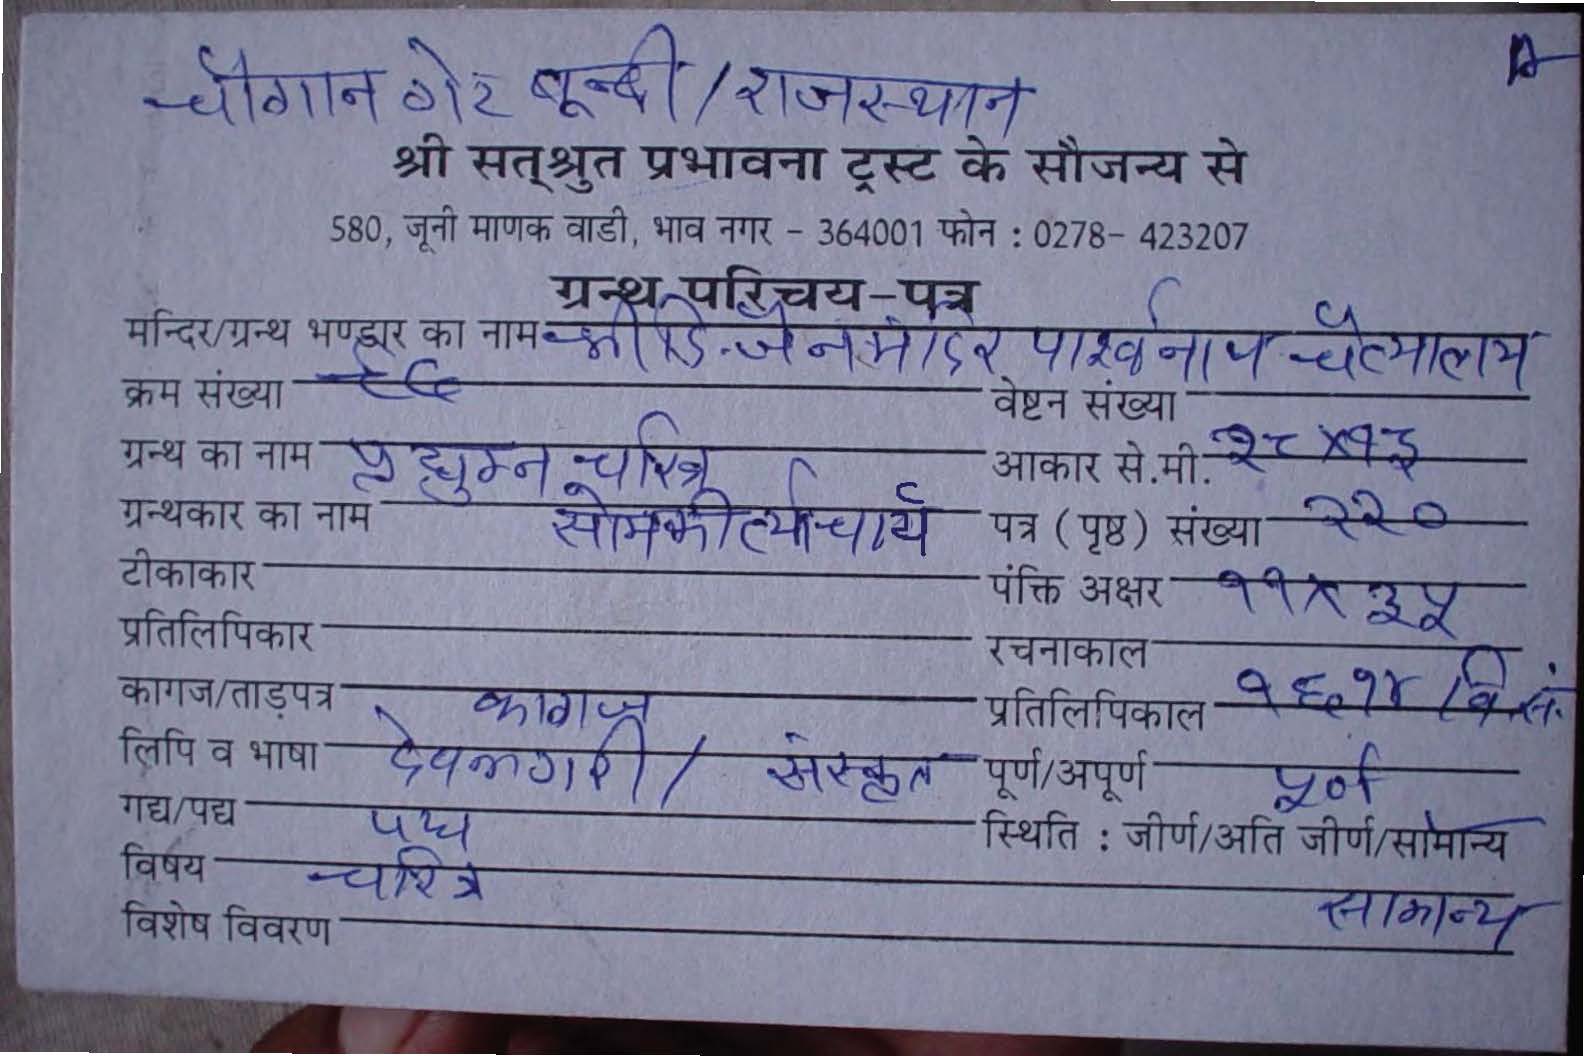 A
चौगान गेट बून्दी / राजस्थान
श्री सत्श्रुत प्रभावना ट्रस्ट के सौजन्य से
580, जूनी माणक वाडी, भाव नगर - 364001 फोन : 0278- 423207
ग्रन्थ परिचय-पत्र
मन्दिर/ग्रन्थ भण्डार का नाम श्री दि. जैन मंदिर पार्श्वनाथ चैत्यालय
क्रम संख्या वेष्टन संख्या
ग्रन्थ का नाम प्रद्युम्न चरित्र आकार से.मी. २८ X १३
ग्रन्थकार का नाम सोमकीर्त्याचार्य पत्र ( पृष्ठ ) संख्या २२०
टीकाकार पंक्ति अक्षर ११ X ३५
प्रतिलिपिकार रचनाकाल
कागज/ताड़पत्र कागज प्रतिलिपिकाल १६१४ / वि.सं.
लिपि व भाषा देवनागरी / संस्कृत पूर्ण/अपूर्ण पूर्ण
गद्य/पद्य पद्य स्थिति : जीर्ण/अति जीर्ण/सामान्य
विषय चरित्र सामान्य
विशेष विवरण